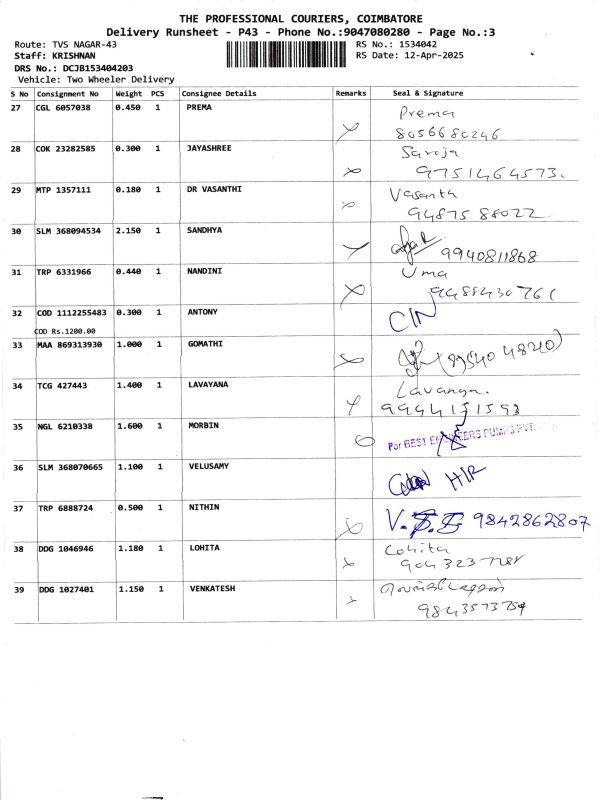 THE PROFESSIONAL COURIERS, COIMBATORE
Delivery Runsheet - P43 - Phone No.:9047080280 - Page No.:3
Route: TVS NAGAR-43 RS No.: 1534042
Staff: KRISHNAN RS Date: 12-Apr-2025
DRS No.: DCJB153404203
Vehicle: Two Wheeler Delivery
S No Consignment No Weight PCS Consignee Details Remarks Seal & Signature
27 CGL 6057038 0.450 1 PREMA Prema
8056680246
28 COK 23282585 0.300 1 JAYASHREE Saroja
9751464573.
29 MTP 1357111 0.180 1 DR VASANTHI Vasanta
9487588022
30 SLM 368094534 2.150 1 SANDHYA
9940811868
31 TRP 6331966 0.440 1 NANDINI Uma
9488430761
32 COD 1112255483 0.300 1 ANTONY CIN
COD Rs.1200.00
33 MAA 869313930 1.000 1 GOMATHI
34 TCG 427443 1.400 1 LAVAYANA Lavanya.
9994151593
35 NGL 6210338 1.600 1 MORBIN For BEST ENGINEERS PUMPS PVT.
36 SLM 368070665 1.100 1 VELUSAMY
37 TRP 6888724 0.500 1 NITHIN 9842862807
38 DDG 1046946 1.180 1 LOHITA Lohita
39 DDG 1027401 1.150 1 VENKATESH
9843573759